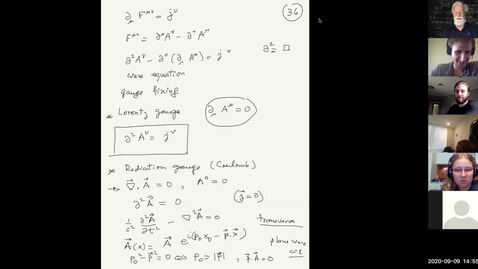 36
∂_μ F^{μν} = j^ν
F^{μν} = ∂^μ A^ν - ∂^ν A^μ
∂² A^ν - ∂^ν (∂_μ A^μ) = j^ν
∂² = □
wave equation
gauge fixing
* Lorentz gauge ∂_μ A^μ = 0
∂² A^ν = j^ν
* Radiation gauge (Coulomb)
→ ∇⃗ . A⃗ = 0 , A⁰ = 0
∂² A⃗ = 0 (j⃗ = 0)
1/c² ∂²A⃗/∂t² - ∇² A⃗ = 0 transverse
A⃗(x) = A⃗ e^{i(p₀x₀ - p⃗.x⃗)} plane wave
c=1
p₀² - p⃗² = 0 ⇔ p₀ = |p⃗| , p⃗ . A⃗ = 0
2020-09-09 14:55